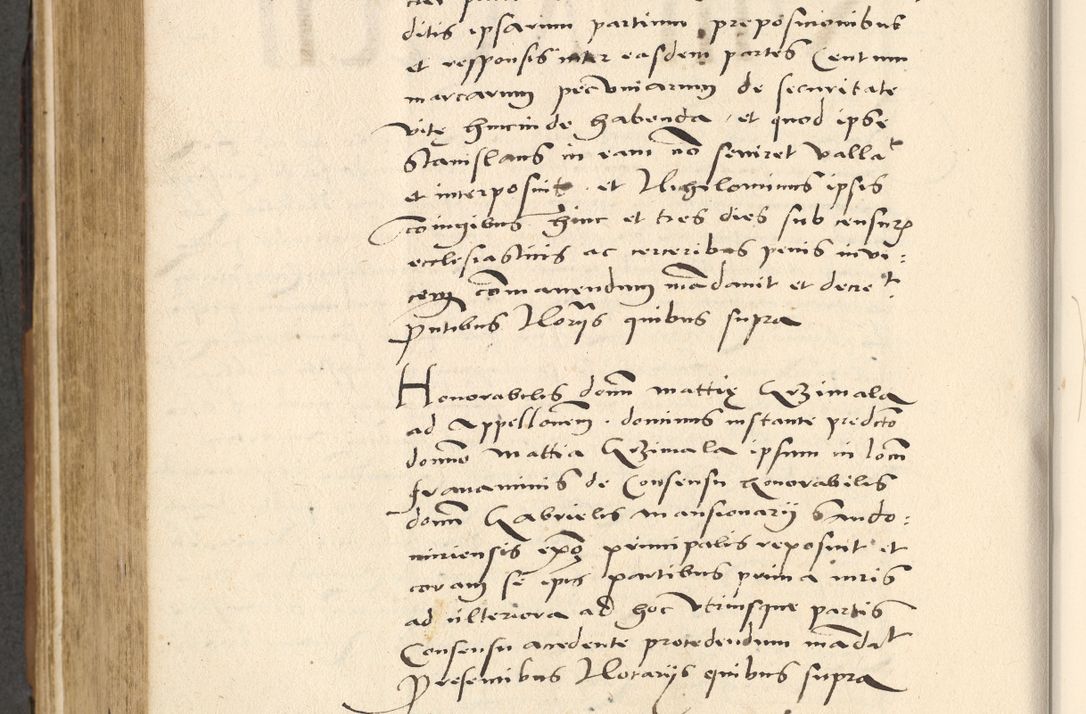 ditis ipsarum partium preposicionibus
et responsis inter easdem partes Centum
marcarum pecuniarum de securitate
vitę hincinde habenda et quod ipse
Stanislaus in eam nō seviret Valla
et interposuit et Nihilominus ipsis
coniugibus hinc et tres dies sub censuris
ecclesiasticis ac carceribus penis invi:
cem cōmanendum mādavit et decret
Pntibus Notarijs quibus supra
Honorabiles domī Mattię Grzimala
ad Appellonem dominus instante predicto
domīo Mattia Grzimala ipsum in locū
Gravaminis de Consensu honorabilis
domī Gabrielis Mansionarij Sando:
miriensis principalis reposuit et
coram se ipīs partibus prima iuris
ad ulteriora ad hoc utriusque partis
Consensu accedente procedendum mādat
Presentibus Notarijs quibus supra